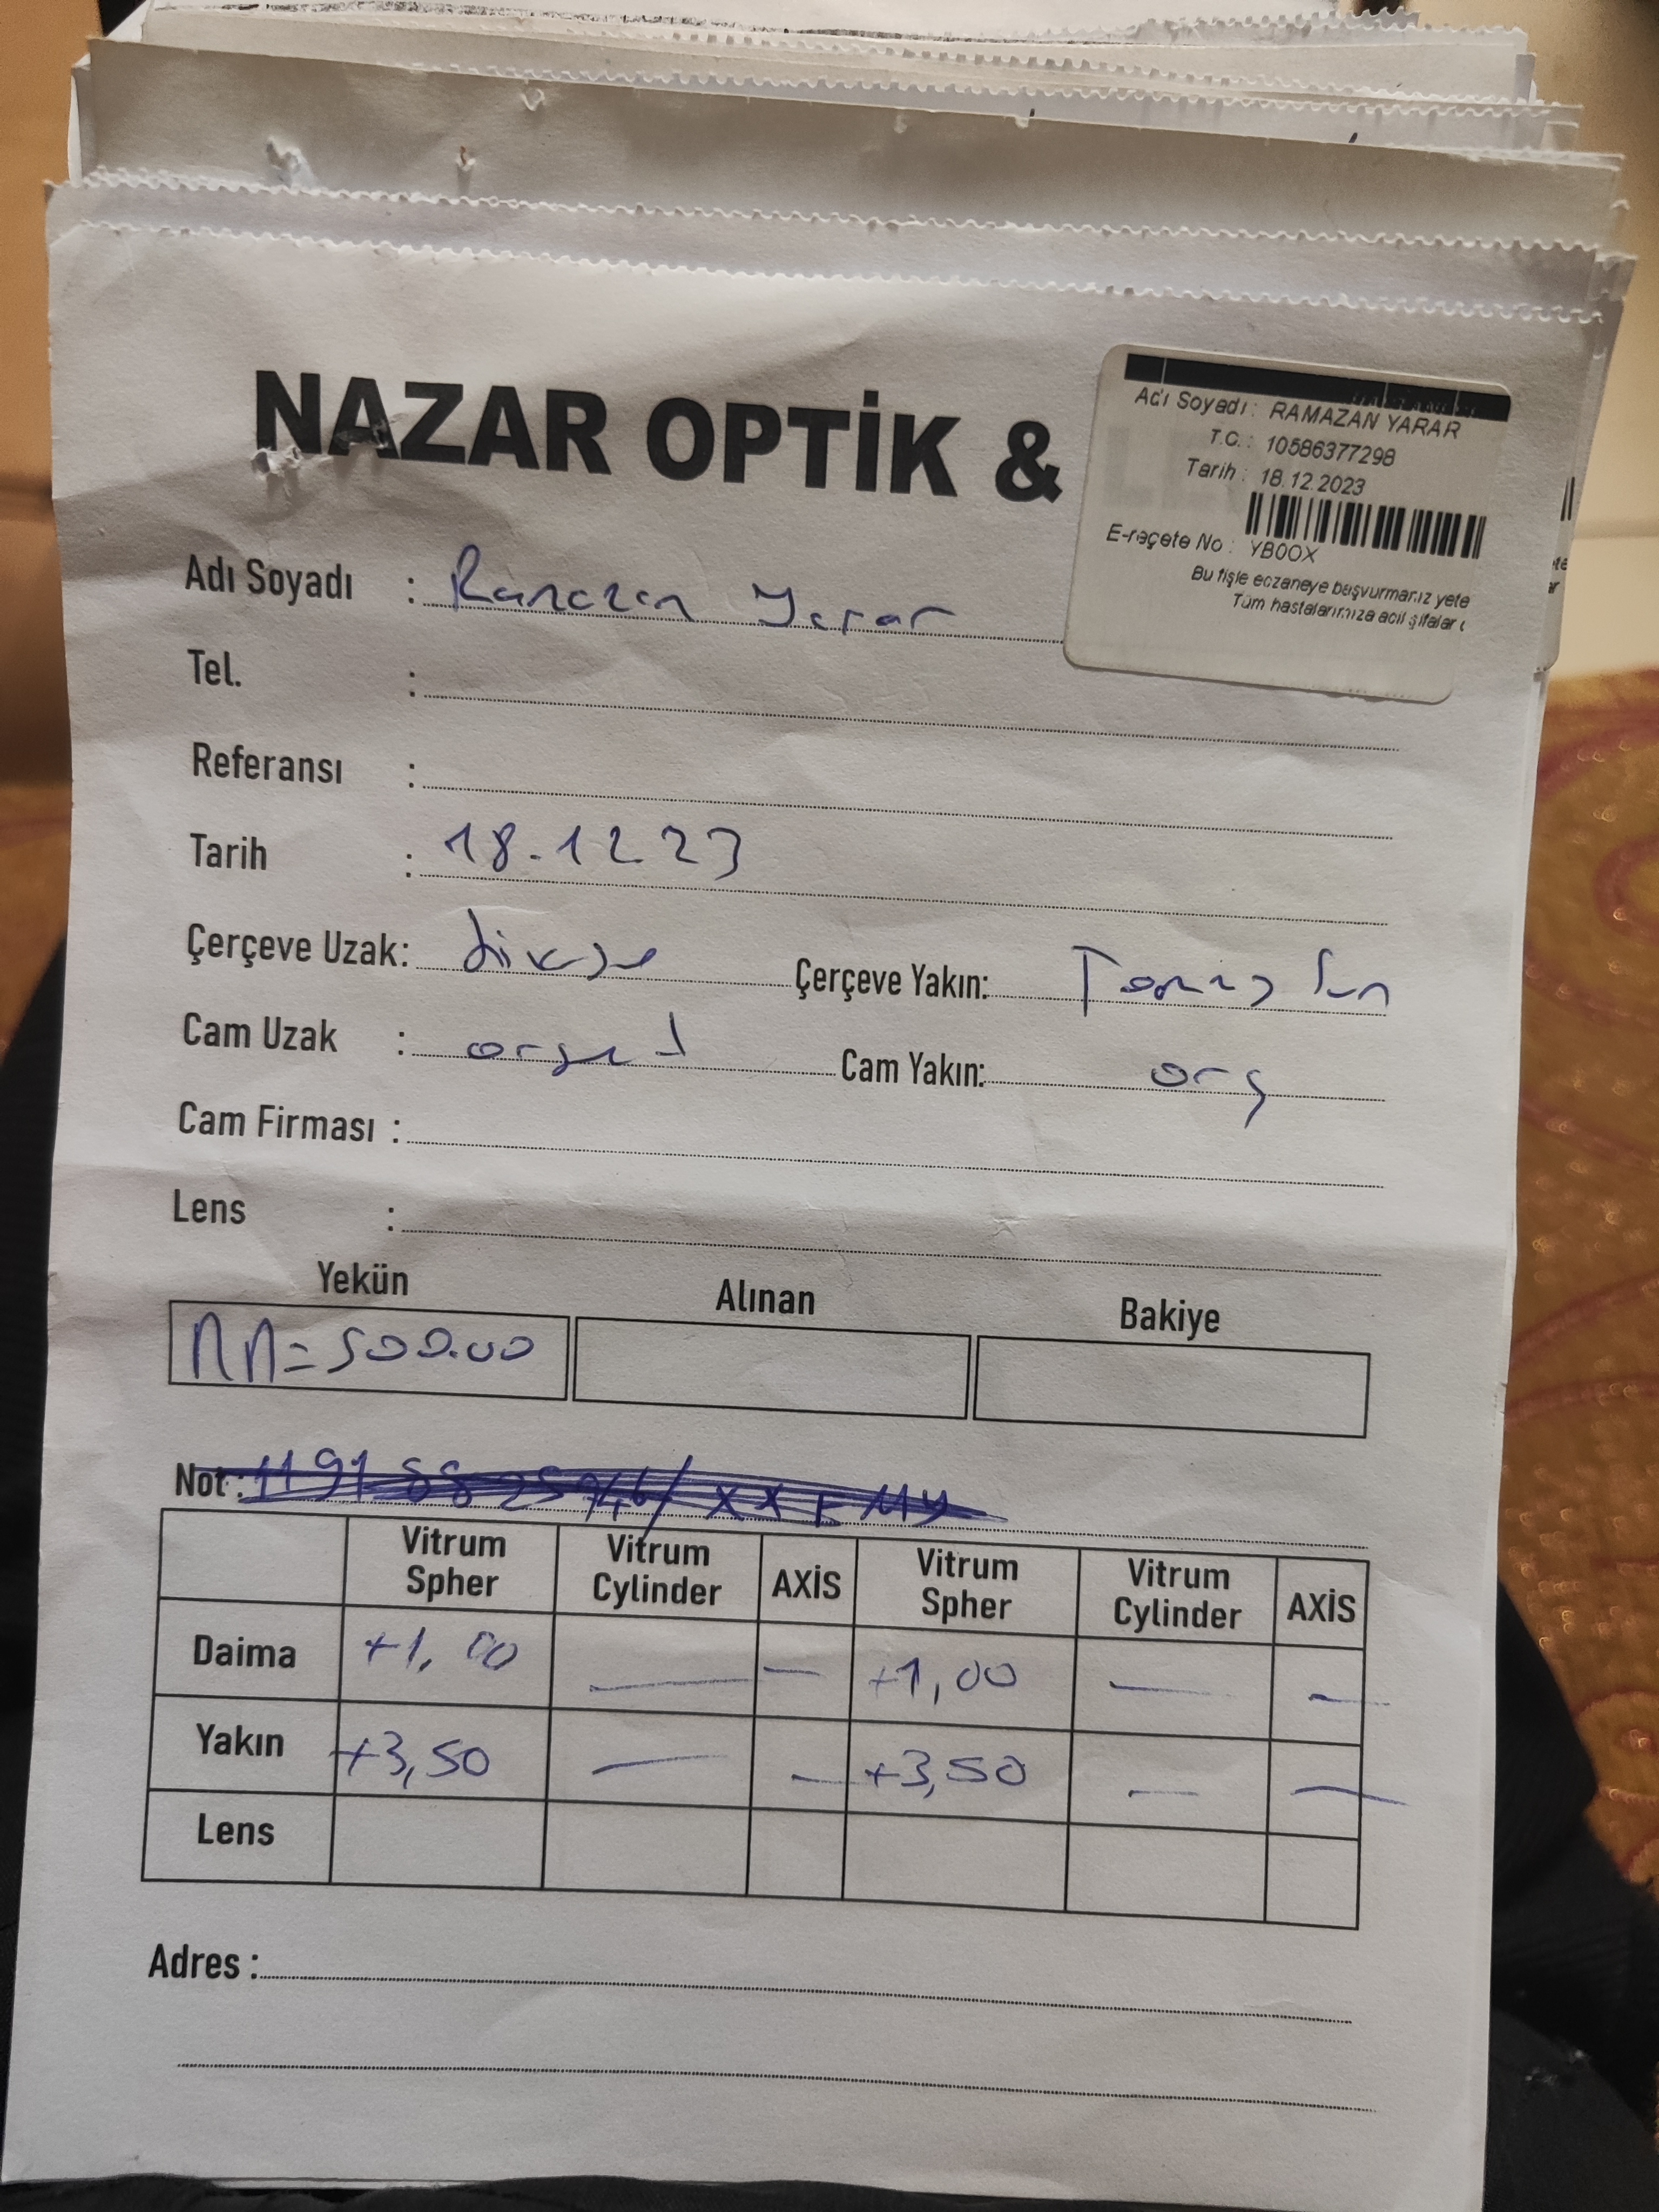 NAZAR OPTİK &
Adı Soyadı : RAMAZAN YARAR
T.C. : 10586377298
Tarih : 18.12.2023
E-reçete No : YB0OX
Bu fişle eczaneye başvurmanız yete
Tüm hastalarımıza acil şifalar
Adı Soyadı : Ramazan Yarar
Tel. :
Referansı :
Tarih : 18.12.23
Çerçeve Uzak: Çerçeve Yakın:
Cam Uzak : Cam Yakın: org
Cam Firması :
Lens :
Yekün Alınan Bakiye
= 500.00
Not :
Vitrum Spher Vitrum Cylinder AXİS Vitrum Spher Vitrum Cylinder AXİS
Daima +1,00 — — +1,00 — —
Yakın +3,50 — — +3,50 — —
Lens
Adres :